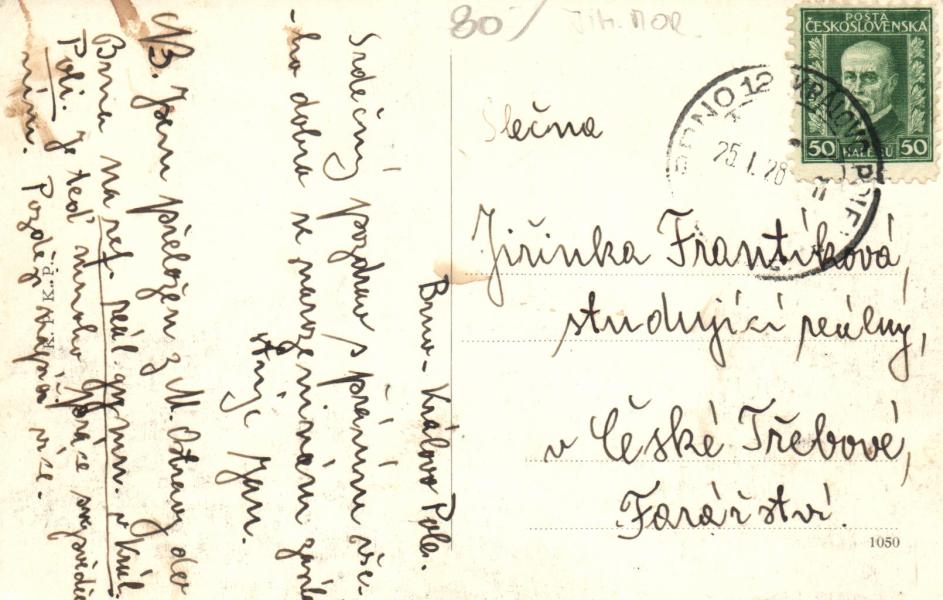 80/ Jih. Mor.
POŠTA
ČESKOSLOVENSKÁ
50 HALÉŘŮ 50
BRNO 12
25.I.28
Slečna
Jiřinka Frantíková,
studující reálky,
v České Třebové,
Farářství.
1050
Brno - Královo Pole.
Srdečný pozdrav s přáním vše-
ho dobra k narozeninám
Jan.
NB. Jsem přeložen z M. Ostravy do
Brna na ref. reál. gymn. v Král.
Poli. Je teď mnoho práce
ními. Později více.
K. IV K. P.